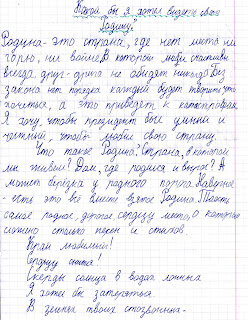 Какой бы я хотел видеть свою
Родину?
Родина- это страна, где нет места ни
горю, ни войне. В которой люди счастливы
всегда, друг-друга не обидят никогда. Без
закона нет порядка каждый будет творить что
хочеться, а это приведёт к катострофам.
Я хочу, чтобы президент был умный и
честный, чтобы любил свою страну.
Что такое Родина? Страна, в которой
мы живём? Дом, где родился и вырос? А
может берёзка у родного порога? Наверное
это всё вместе взятое Родина. Такое
самое родное, дорогое сердцу место, о котором
сложено столько песен и стихов.
Край любимый!
Сердцу снятся
Скерды солнца в водах лонных
Я хотел бы затеряться
В зеленях твоих стозвонных.